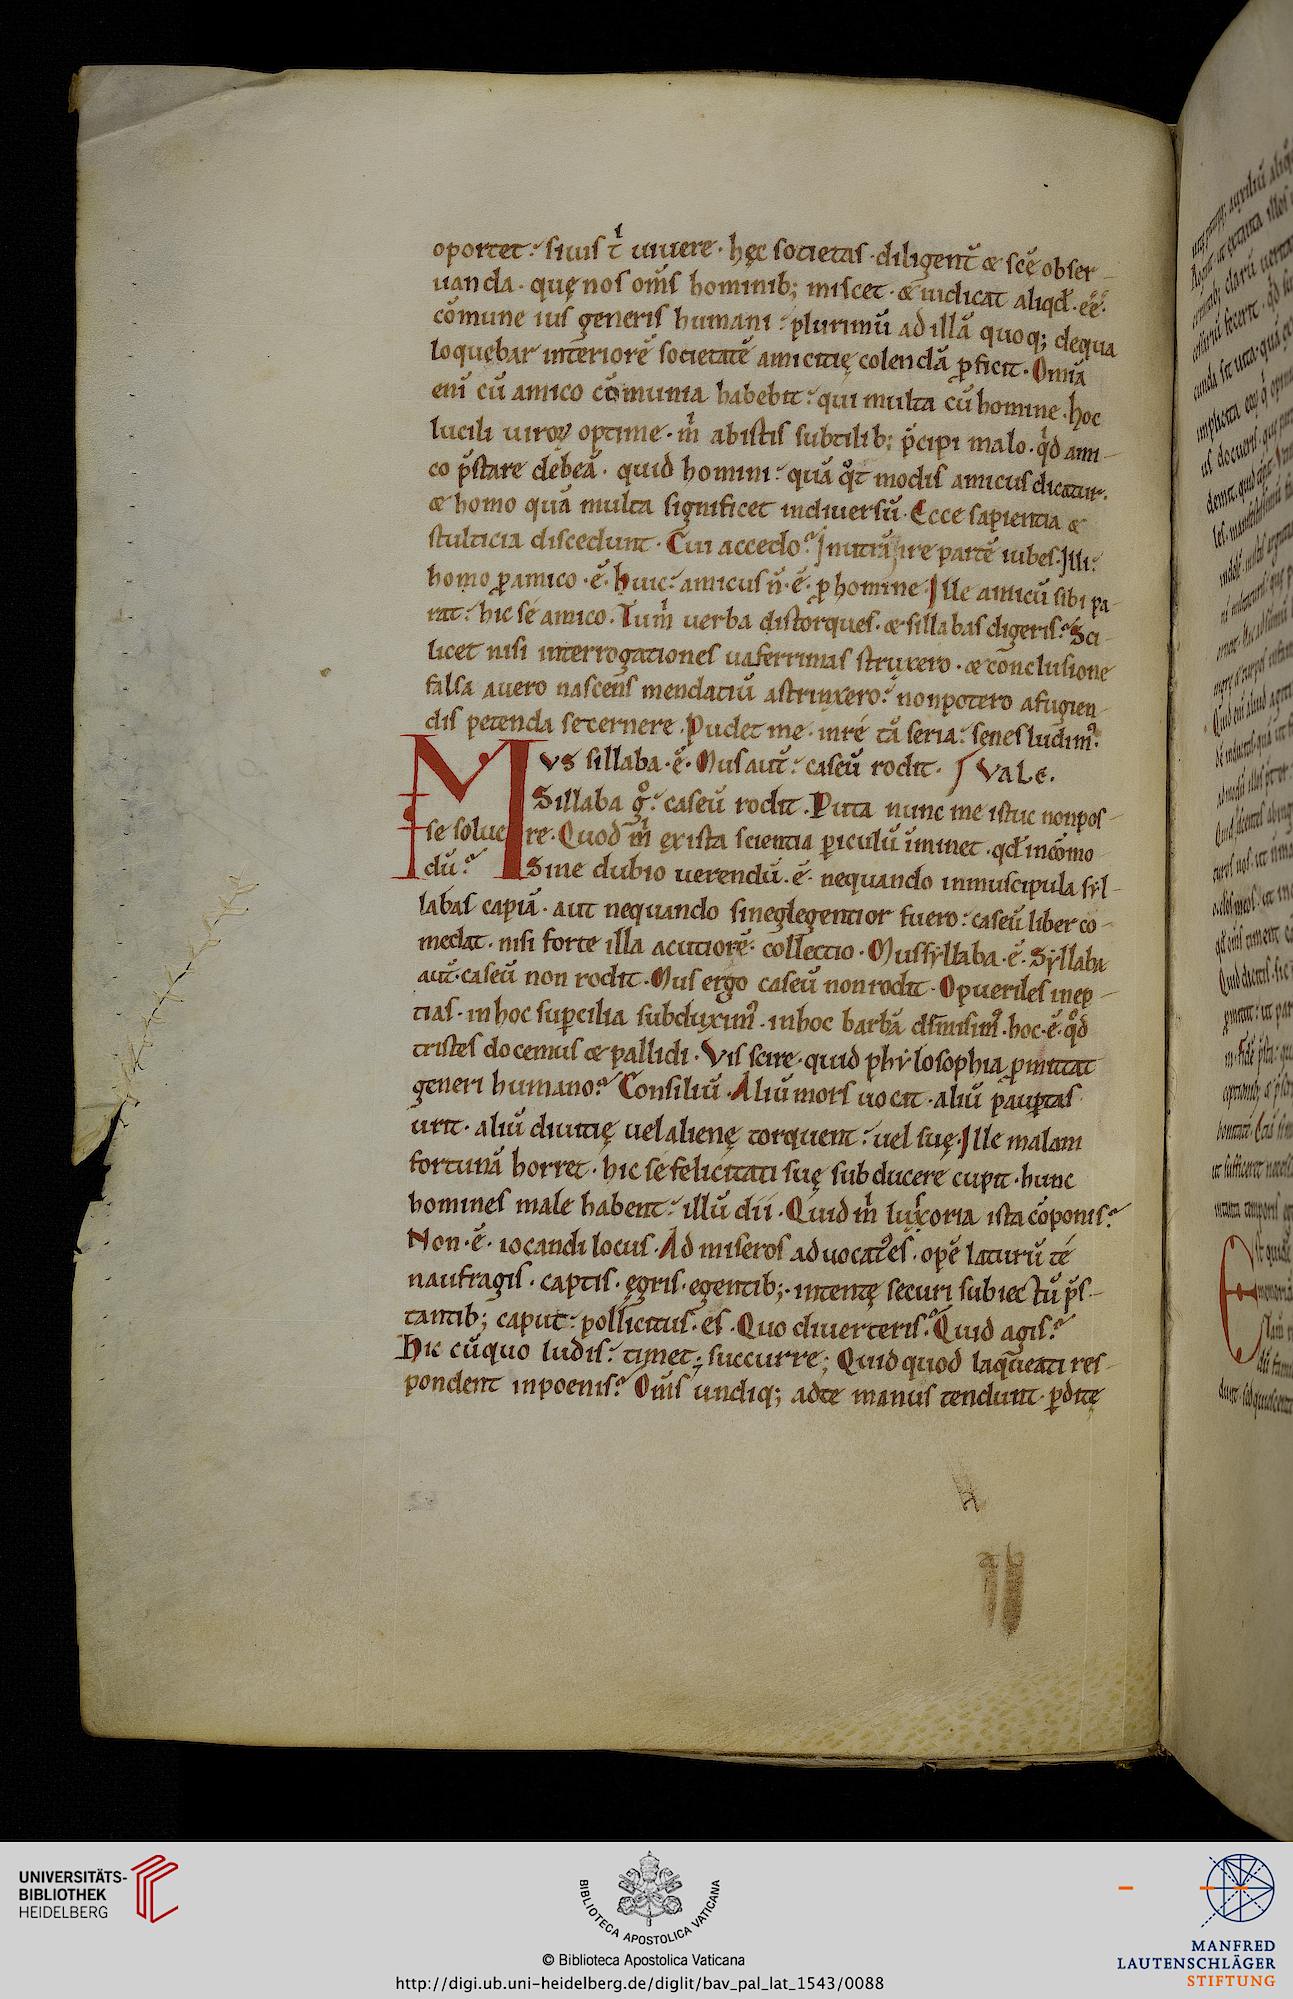 oportet. si uis t̄ uiuere. hęc societas. diligent̄ & sc̄e obser-
uanda. quę nos om̄s hominib; miscet. & iudicat aliqd̄. eē.
cōmune ius generis humani. plurimū ad illā quoq; de qua
loquebar interiorē societatē amicitię colendā ꝓficit. Omīa
enī cū amico cōmunia habebit. qui multa cū homine. hoc
lucili uiroꝝ optime. m̄ ab istis subtilib; p̄cipi malo. qd̄ ami-
co p̄stare debeā. quid homini. quā qͦt modis amicus dicatur.
& homo quā multa significet in diuersū. Ecce sapientia &
stulticia discedunt. Cui accedo? In utrā ire partē iubes. Illi.
homo ꝓ amico. ē. huic. amicus n̄. ē. ꝓ homine. Ille amicū sibi pa-
rat. hic se amico. Tu m̄ uerba distorques. & sillabas digeris? Sci-
licet nisi interrogationes uaferrimas struxero. & conclusione
falsa a uero nascens mendatiū astrinxero. non potero a fugien-
dis petenda secernere. Pudet me. in re tā seria. senes ludim᷒.
MVS sillaba. ē. Mus aut̄. caseū rodit. VALE.
Sillaba gͦ. caseū rodit. Puta nunc me istuc non pos-
se soluere. Quod m̄ ex ista scientia ꝑiculū īminet. qd̄ incōmo-
dū? Sine dubio uerendū. ē. ne quando in muscipula syl-
labas capiā. aut ne quando si neglegentior fuero. caseū liber co-
medat. nisi forte illa acutiorē. collectio. Mus syllaba. ē. Syllaba
aut̄. caseū non rodit. Mus ergo caseū non rodit. O pueriles inep-
tias. in hoc suꝑcilia subduxim᷒. in hoc barbā dīmisim᷒. hoc. ē. qͦd
tristes docemus & pallidi. Vis scire. quid phylosophia ꝓmittat
generi humano? Consiliū. Aliū mors uocat. aliū pauꝑtas
urit. aliū diuitię uel alienę torquent. uel suę. Ille malam
fortunā horret. hic se felicitati suę subducere cupit. hunc
homines male habent. illū dii. Quid m̄ luxoria ista cōponis?
Non. ē. iocandi locus. Ad miseros aduocat᷒ es. opē laturū te
naufragis. captis. ęgris. egentib;. intentę securi subiectū p̄s-
tantib; caput. pollicitus. es. Quo diuerteris? Quid agis?
Hic cū quo ludis. timet; succurre; Quid quod laq̄ati res-
pondent in poenis? Om̄s undiq; ad te manus tendunt. ꝑditę
UNIVERSITÄTS-
BIBLIOTHEK
HEIDELBERG
BIBLIOTECA APOSTOLICA VATICANA
© Biblioteca Apostolica Vaticana
http://digi.ub.uni-heidelberg.de/diglit/bav_pal_lat_1543/0088
MANFRED
LAUTENSCHLÄGER
STIFTUNG